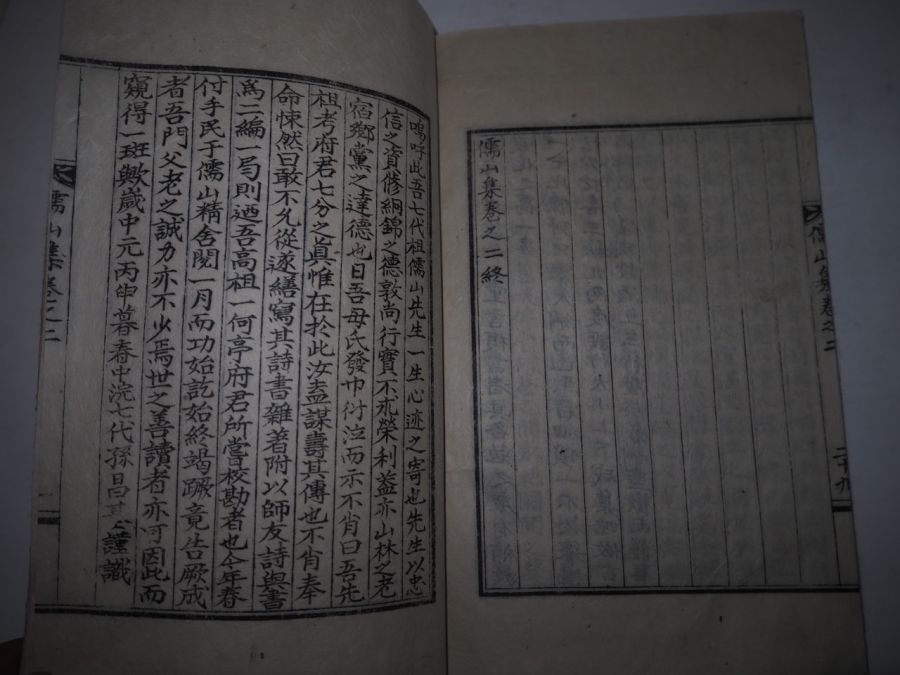 儒山集卷之二
二十九
儒山集卷之二終
嗚呼此吾七代祖儒山先生一生心迹之寄也先生以忠
信之資修絅錦之德敦尚行實不求榮利蓋亦山林之老
宿鄉黨之達德也日吾母氏發巾衍泣而示不肖曰吾先
祖考府君七分之眞惟在於此汝盍謀壽其傳也不肖奉
命悚然曰敢不允從遂繕寫其詩書雜著附以師友詩與書
爲二編一弓則迺吾高祖一何亭府君所嘗校勘者也今年春
付手民于儒山精舍閱一月而功始訖始終竭蹶竟告厥成
者吾門父老之誠力亦不少焉世之善讀者亦可因此而
窺得一斑歟歲中元丙申暮春中浣七代孫昌 謹識
儒山集卷之二